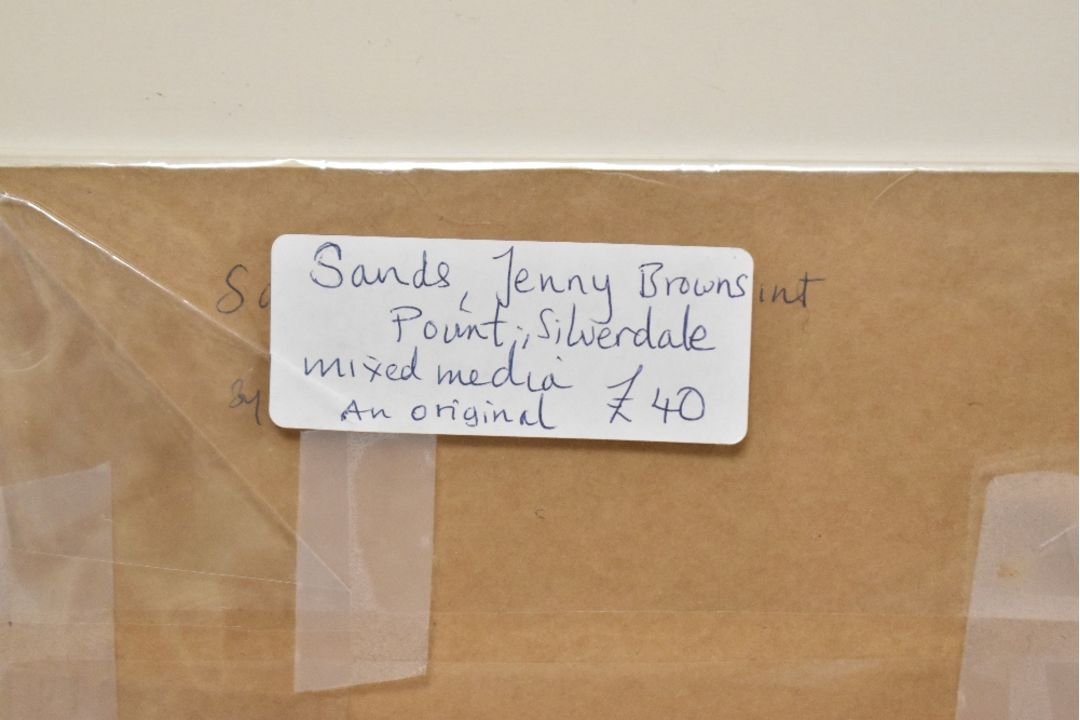 Sands, Jenny Browns
Point, Silverdale
mixed media
An original £40
By